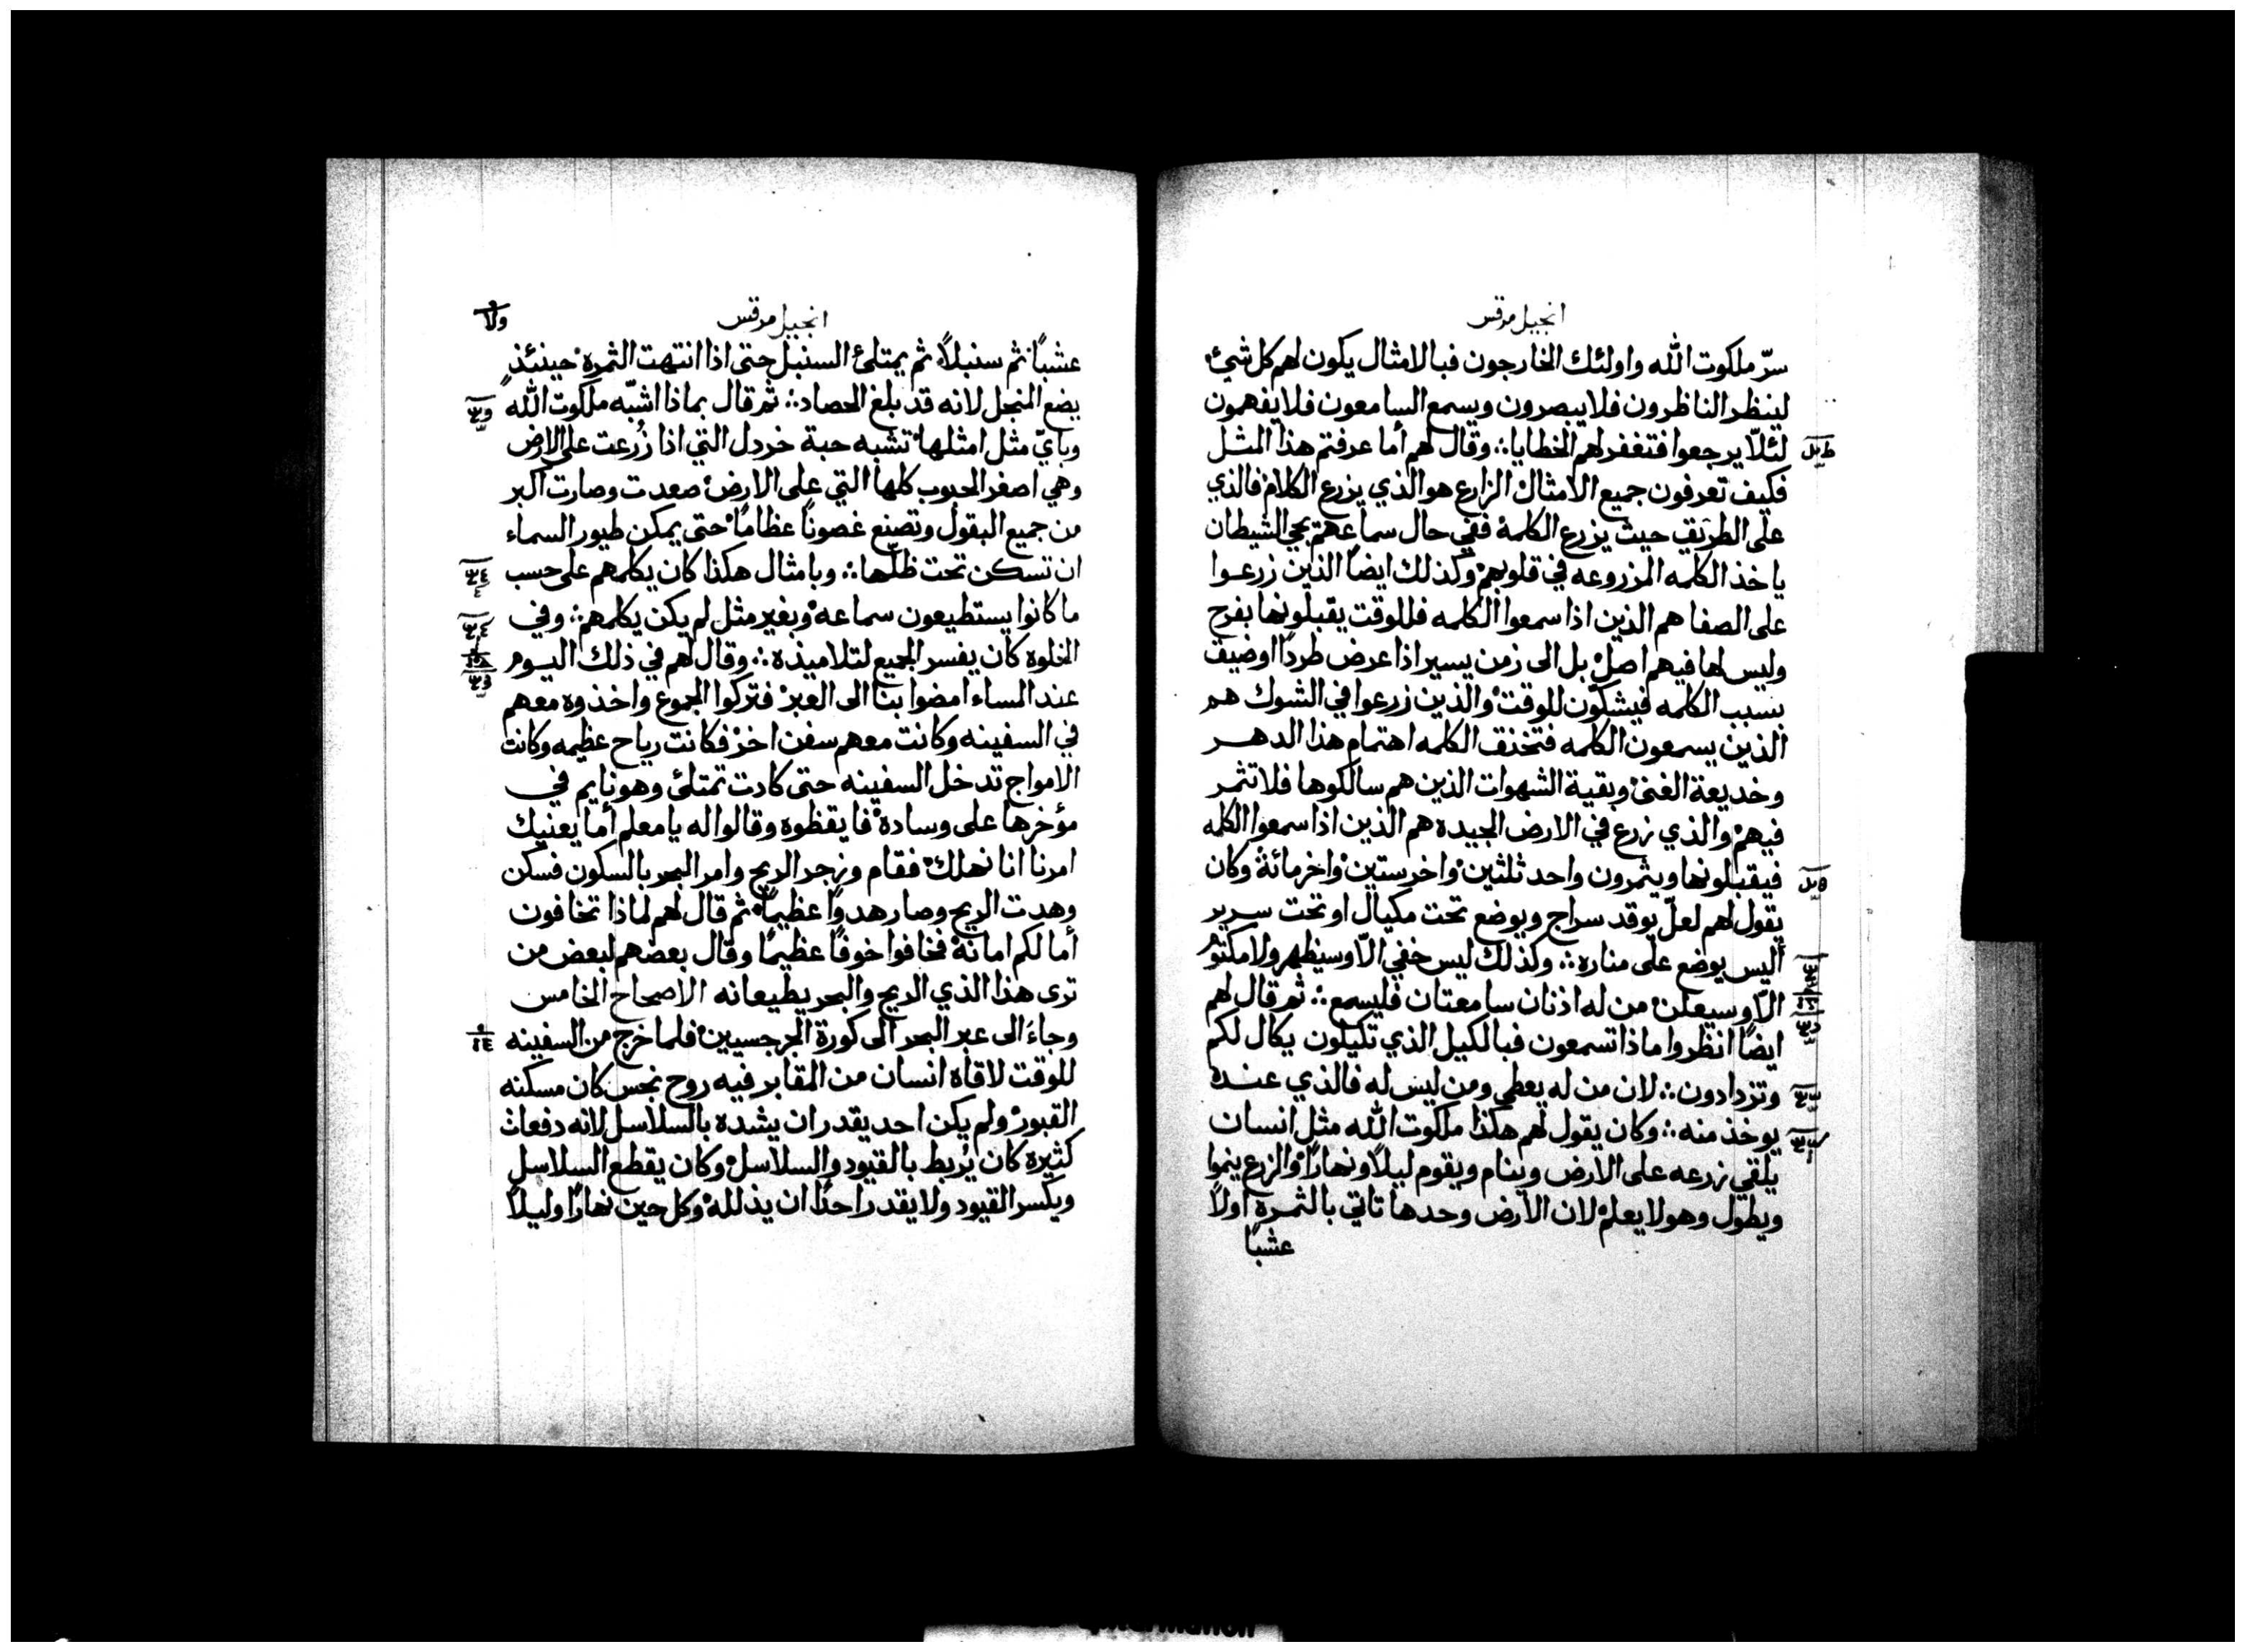 انجيل مرقس
سرّ ملكوت الله واولئك الخارجون فبالامثال يكون لهم كل شيء
لينظر الناظرون فلا يبصرون ويسمع السامعون فلا يفهمون
لئلّا يرجعوا فتغفر لهم الخطايا ∴ وقال لهم أما عرفتم هذا المثل
فكيف تعرفون جميع الامثال الزارع هو الذي يزرع الكلام فالذي
على الطريق حيث يزرع الكلمة ففي حال سماعهم يجي الشيطان
ياخذ الكلمه المزروعه في قلوبهم وكذلك ايضاً الذين زرعوا
على الصفا هم الذين اذا سمعوا الكلمه فللوقت يقبلونها بفرح
وليس لها فيهم اصل بل الى زمن يسير اذا عرض طردًا اوضيق
بسبب الكلمه فيشكّون للوقت والذين زرعوا في الشوك هم
الذين يسمعون الكلمه فتخنق الكلمه اهتمام هذا الدهر
وخديعة الغنى وبقية الشهوات الذين هم سالكوها فلا تثمر
فيهم والذي زرع في الارض الجيده هم الذين اذا سمعوا الكلمه
فيقبلونها ويثمرون واحد ثلثين واخر ستين واخر مائة وكان
يقول لهم لعلّ يوقد سراج ويوضع تحت مكيال او تحت سرير
أليس يوضع على مناره ∴ وكذلك ليس خفي الّا وسيظهر ولا مكتوم
الّا وسيعلن من له اذنان سامعتان فليسمع ∴ ثم قال لهم
ايضًا انظروا ماذا تسمعون فبالكيل الذي تكيلون يكال لكم
وتزدادون ∴ لان من له يعطى ومن ليس له فالذي عنده
يوخذ منه ∴ وكان يقول لهم هكذا ملكوت الله مثل انسان
يلقي زرعه على الارض وينام ويقوم ليلًا ونهارًا والزرع ينموا
ويطول وهو لا يعلم لان الارض وحدها تاتي بالثمرة اولًا
عشبًا
انجيل مرقس
عشبًا ثم سنبلًا ثم يمتلئ السنبل حتى اذا انتهت الثمره حينئذٍ
يضع المنجل لانه قد بلغ الحصاد ∴ ثم قال بماذا اشبّه ملكوت الله
وبايّ مثل امثلها تشبه حبة خردل التي اذا زُرعت على الارض
وهي اصغر الحبوب كلها التي على الارض صعدت وصارت اكبر
من جميع البقول وتصنع غصونًا عظامًا حتى يمكن طيور السماء
ان تسكن تحت ظلّها ∴ وبامثال هكذا كان يكلمهم على حسب
ما كانوا يستطيعون سماعه وبغير مثل لم يكن يكلمهم ∴ وفي
الخلوه كان يفسر الجميع لتلاميذه ∴ وقال لهم في ذلك اليوم
عند المساء امضوا بنا الى العبر فتركوا الجموع واخذوه معهم
في السفينه وكانت معهم سفن اخر فكانت رياح عظيمه وكانت
الامواج تدخل السفينه حتى كادت تمتلئ وهو نايم في
مؤخرها على وسادة فايقظوه وقالوا له يا معلم أما يعنيك
امرنا انا نهلك فقام وزجر الريح وامر البحر بالسكون فسكن
وهدت الريح وصار هدوًا عظيمًا ثم قال لهم لماذا تخافون
أما لكم امانة فخافوا خوفًا عظيمًا وقال بعضهم لبعض من
ترى هذا الذي الريح والبحر يطيعانه الاصحاح الخامس
وجاءَ الى عبر البحر الى كورة الجرجسيين فلما خرج من السفينه
للوقت لاقاه انسان من المقابر فيه روح نجس كان مسكنه
القبور ولم يكن احد يقدر ان يشده بالسلاسل لانه دفعات
كثيرة كان يُربط بالقيود والسلاسل وكان يقطع السلاسل
ويكسر القيود ولا يقدر احدًا ان يذلله وكل حين نهارًا وليلًا